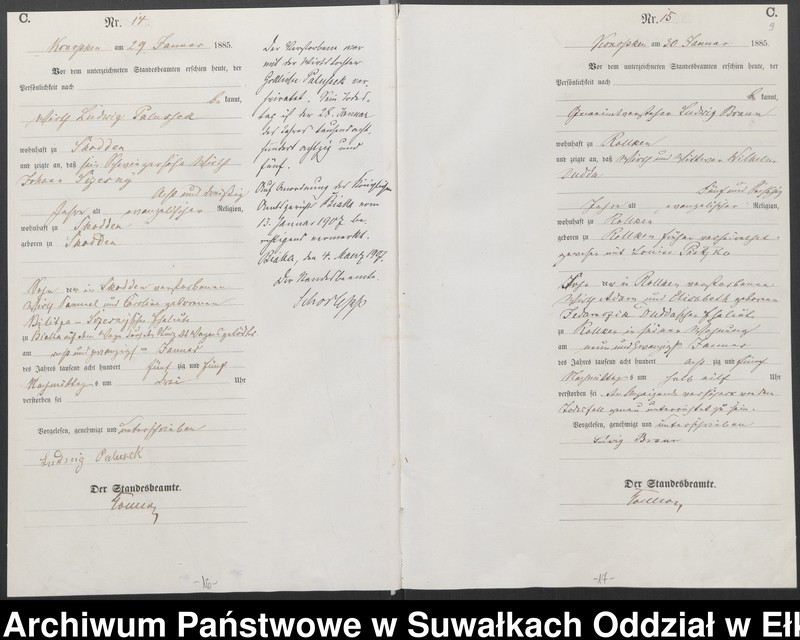 C.
Nr. 14
Konopken am 29 Januar 1885.
Vor dem unterzeichneten Standesbeamten erschien heute, der
Persönlichkeit nach
kannt,
Wirth Ludwig Palussek
wohnhaft zu Skodden
und zeigte an, daß sein Wirth
Johann
Acht und dreißig
Jahre alt evangelischer Religion,
wohnhaft zu Skodden
geboren zu Skodden
Sohn in Skodden verstorbenen
Wirth Samuel und Caroline geborenen
Eheleute
zu Bialla auf dem
am acht und zwanzigsten Januar
des Jahres tausend acht hundert achtzig und fünf
Nachmittags um drei Uhr
verstorben sei
Vorgelesen, genehmigt und unterschrieben
Ludwig Palussek
Der Standesbeamte.
Der Verstorbene war
mit der Wirthstochter
Gottliebe Palussek ver-
heiratet. Sein Todes-
tag ist der 28. Januar
des Jahres tausend acht-
hundert achtzig und
fünf.
Auf Anordnung des Königlichen
Amtsgerichts Bialla vom
13. Januar 1907 be-
richtigend vermerkt.
Bialla, den 4. Maerz 1907.
Der Standesbeamte
-16-
C.
9
Nr. 15
Konopken am 30 Januar 1885.
Vor dem unterzeichneten Standesbeamten erschien heute, der
Persönlichkeit nach
kannt,
Gemeindevorsteher Ludwig Braun
wohnhaft zu Rollken
und zeigte an, daß Wirth und Wittwer Wilhelm
Fünf und sechszig
Jahre alt, evangelischer Religion,
wohnhaft zu Rollken
geboren zu Rollken früher verheirathet
gewesen mit Louise
Sohn in Rollken verstorbenen
Wirth Adam und Elisabeth geborene
Eheleute
zu Rollken in seiner Wohnung
am neun und zwanzigsten Januar
des Jahres tausend acht hundert achtzig und fünf
Nachmittags um halb eilf Uhr
verstorben sei. Anzeigende versichert von dem
Todesfall genau unterrichtet zu sein.
Vorgelesen, genehmigt und unterschrieben
Ludwig Braun
Der Standesbeamte.
-17-
Archiwum Państwowe w Suwałkach Oddział w Eł